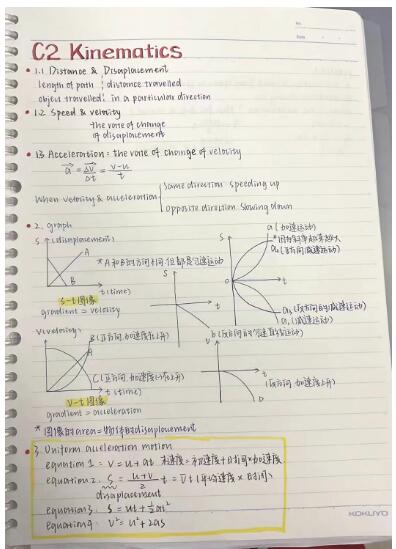 No.
Date
C2 Kinematics
• 1.1 Distance & Disaplacement
length of path ; distance travelled
object travelled: in a particular direction
• 1.2 Speed & velocity
the rate of change
of disaplacement
• 1.3 Acceleration: the rate of change of velocity
a = Δv/Δt = (v-u)/t
When velocity & acceleration
Same direction: speeding up
Opposite direction: slowing down
• 2. graph
S (disaplacement)
A
B
t (time)
* A和B的方向不同,但都是匀速运动
s-t 图像
gradient = velocity
S
t
b (反方向的匀速直线运动)
S
t
0
a (加速运动)
a₂ (正方向减速运动)
a₃ (反方向的减速运动)
V(velocity)
B (正方向,加速度在上升)
A
C (正方向,加速度在上升)
t (time)
V-t 图像
gradient = acceleration
V
t
D
(反方向,加速度上升)
* 图像的area = 物体的disaplacement
3. Uniform acceleration motion
equation 1: v = u + at 末速度 = 初速度 + 时间×加速度
equation 2: S = (u+v)/2 t = v̄t (平均速度 × 时间)
disaplacement
equation 3: S = ut + ½at²
equation 4: V² = u² + 2as
KOKUYO